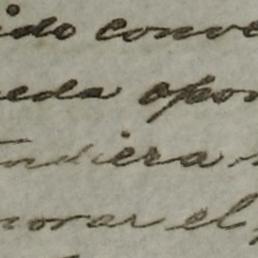 ido conve
eda opor
ndiera
orar el